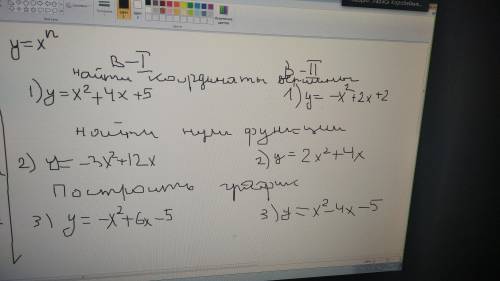 y=xⁿ
В-I В-II
Найти координаты вершины
1) y=x²+4x+5 1) y= -x²+2x+2
Найти нули функции
2) y= -3x²+12x 2) y= 2x²+4x
Построить график
3) y= -x²+6x-5 3) y= x²-4x-5